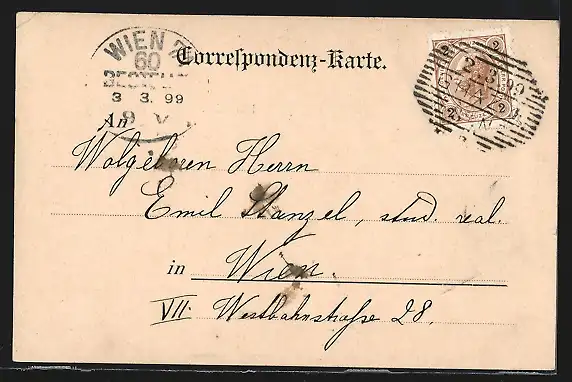 WIEN 7
60
BESTELLT
3 3. 99
9 V
Correspondenz-Karte.
2 2
2.3.99
2 2
An
Wolgeboren Herrn
Emil Stanzel, stud. real.
in Wien.
VII. Westbahnstraße 28.